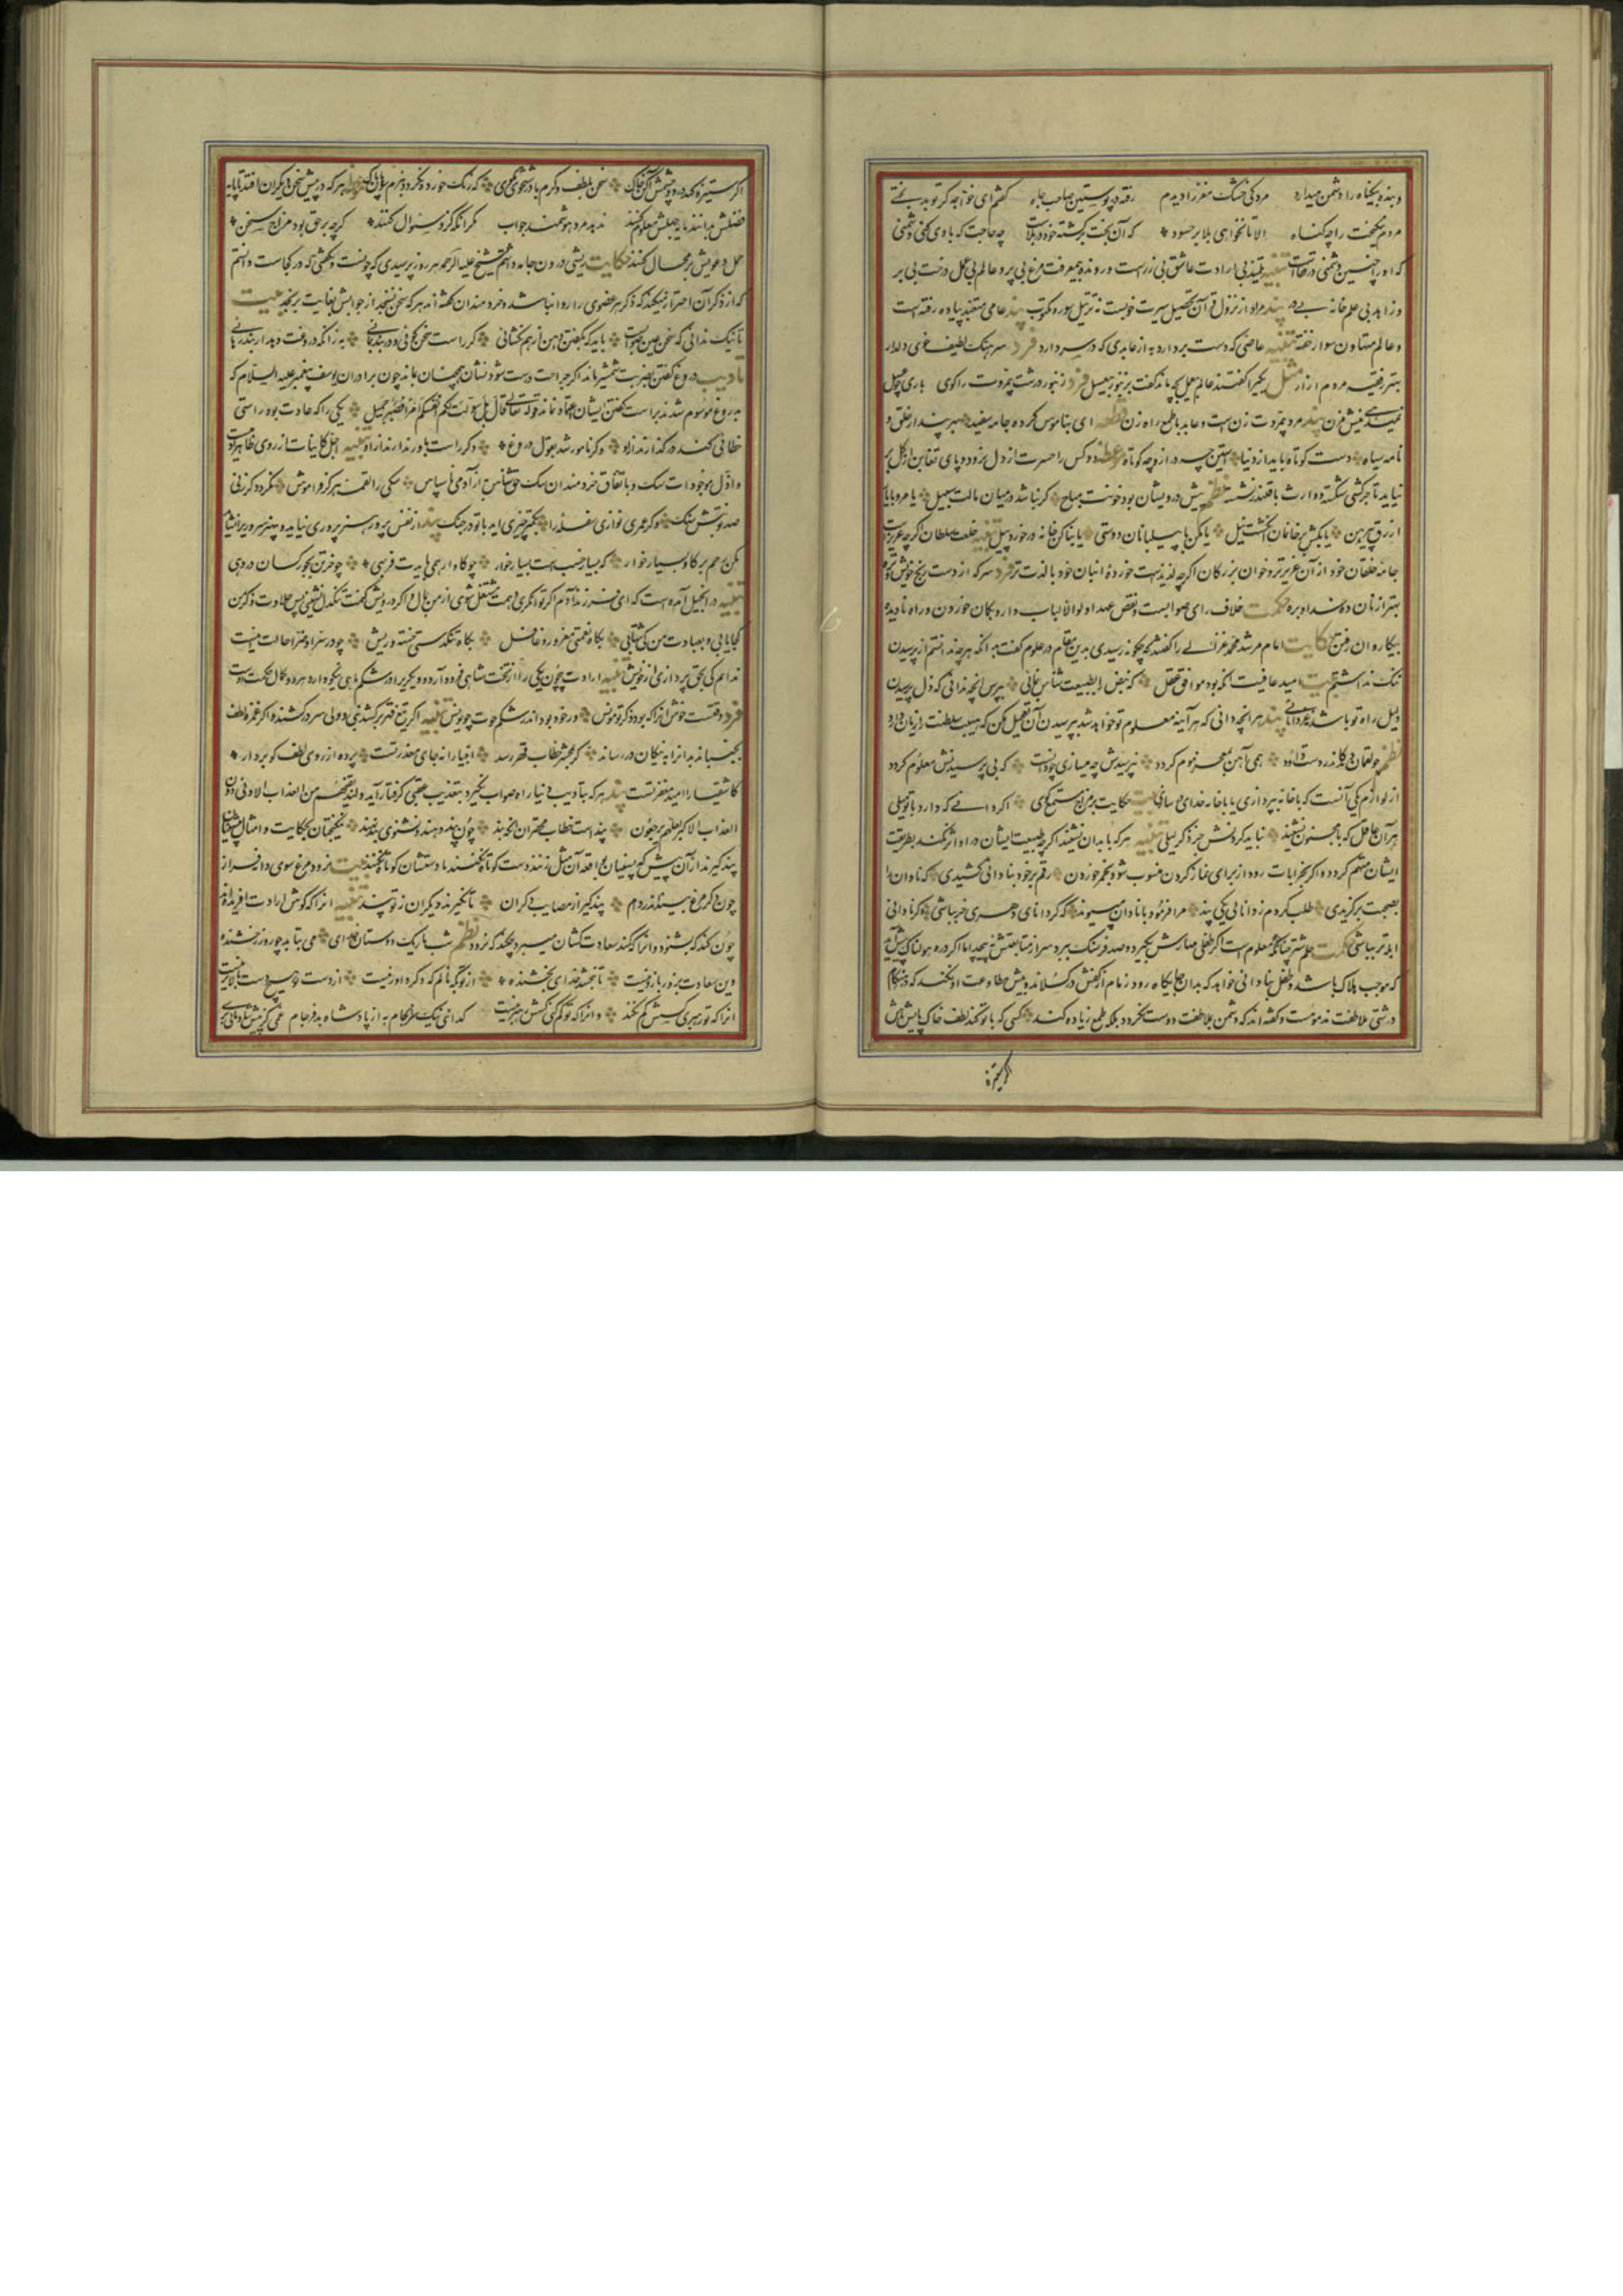 و بنده بیگناه را دشمن میدارد مردکی خشک مغز را دیدم رفته در پوستین صاحب جاه گفتم ای خواجه گر تو بدبختی
مردم نیکبخت را چه گناه الا تا نخواهی بلا بر حسود که آن بخت برگشته خود در بلاست چه حاجت که با وی کنی دشمنی
که او را چنین دشمنی در قفاست تنبیه تلمیذ بی ارادت عاشق بی زرست و رونده بی معرفت مرغ بی پر و عالم بی عمل درخت بی بر
و زاهد بی علم خانه بی در پند مراد از نزول قرآن تحصیل سیرت خوبست نه ترتیل سوره مکتوب پند عامی متعبد پیاده رفته است
و عالم متهاون سوار خفته تنبیه عاصی که دست بردارد به از عابدی که در سر دارد فرد سرهنگ لطیف خوی دلدار
بهتر ز فقیه مردم ازار مثل یکیرا گفتند عالم بی عمل بچه ماند گفت بزنبور بی عسل فرد زنبور درشت بیمروت را گوی باری چو عسل
نمیدهی نیش مزن پند مرد بیمروت زن است و عابد با طمع راه زن قطعه ای بناموس کرده جامه سفید بهر پندار خلق و
نامه سیاه دست کوتاه باید از دنیا آستین چه دراز و چه کوتاه موعظه دو کس را حسرت از دل نرود و پای تغابن از گل بر
نیاید تاجر کشتی شکسته و وارث با قلندر نشسته نظم پیش درویشان بود خونت مباح گر نباشد در میان مالت سبیل یا مرو با یار
ازرق پیرهن یا بکش بر خانمان انگشت نیل یا مکن با پیلبانان دوستی یا بنا کن خانه در خورد پیل تنبیه خلعت سلطان گرچه عزیزست
جامه خلقان خود از آن عزیزتر و خوان بزرگان اگرچه لذیذست خورده انبان خود با لذت تر فرد سرکه از دست رنج خویش و تره
بهتر از نان دهخدا و بره حکمت خلاف رای صوابست و نقض عهد اولوالالباب دارو بگمان خوردن و راه نادیده
بیکاروان رفتن حکایت امام مرشد محمد غزالی را گفتند چگونه رسیدی بدین مقام در علوم گفت بدانکه هر چه ندانستم از پرسیدن
ننگ نداشتم بیت امید عافیت انگه بود موافق عقل که نبض را بطبیعت شناس بنمائی بپرس انچه ندانی که ذل پرسیدن
دلیل راه تو باشد بعز دانائی پند هر انچه دانی که هر آینه معلوم تو خواهد شد بپرسیدن آن تعجیل مکن که هیبت سلطنت را زیان دارد
نظم چو لقمان دید کاندر دست داود همی آهن بمعجز موم گردد نپرسیدش چه میسازی چو دانست که بی پرسیدنش معلوم گردد
از لوازم یکی آنست که یا خانه بپردازی یا با خانه خدای در سازی بیت حکایت بر مزاج مستمع گوی اگر دانی که دارد با تو میلی
هر آن عاقل که با مجنون نشیند نباید کردنش جز ذکر لیلی تنبیه هر که با بدان نشیند اگرچه طبیعت ایشان در او اثر نکند بطریقت
ایشان متهم گردد و اگر بخرابات رود از برای نماز کردن منسوب شود بخمر خوردن رقم بر خود بنادانی کشیدی که نادان را
بصحبت برگزیدی طلب کردم ز دانایی یکی پند مرا فرمود با نادان مپیوند که گر دانای دهری خر بباشی و گر نادانی
ابله تر بباشی حکمت حلم شتر چنانکه معلوم است اگر طفلی مهارش بگیرد و صد فرسنگ ببرد سر از متابعتش نپیچد اما اگر دره هولناک پیش آید
که موجب هلاک باشد و طفل بنادانی خواهد که بدان جایگاه رود زمام از کفش در گسلاند و بیش مطاوعت او نکند که در هنگام
درشتی ملاطفت مذمومست و گفته اند که دشمن بملاطفت دوست نگردد بلکه طمع زیاده کند کسی که با تو کند لطف خاک پایش باش
اگر ستیزه
اگر ستیزه کند در دو چشمش آگن خاک سخن بلطف و کرم با درشتخوی مگوی که زنگ خورده نگردد بنرم سوهان پاک هر که در پیش سخن دیگران افتد تا پایه
فضلش بدانند پایه جهلش معلوم کنند ندهد مرد هوشمند جواب مگر انگه کزو سؤال کنند گرچه بر حق بود مزاج سخن
حمل دعویش بر محال کنند حکایت ریشی درون جامه داشتم شیخ علیه الرحمه هر روز پرسیدی که چونست و نگفتی که در کجاست دانستم
که از ذکر آن احتراز میکند که ذکر هر عضوی را روا نباشد و خردمندان گفته اند هر که سخن نسنجد از جوابش بغایت برنجد بیت
تا نیک ندانی که سخن عین صوابست باید که بگفتن دهن از هم نگشائی گر راست سخن گوئی و در بند بمانی به زانکه دروغت دهد از بند رهائی
تادیب دروغ گفتن بضربت شمشیر ماند اگر جراحت درست شود نشان همچنان بماند چون برادران یوسف پیغمبر علیه السلام که
بدروغ موسوم شدند بر است گفتن ایشان اعتماد نماند قوله تعالی قال بل سولت لکم انفسکم امرا فصبر جمیل یکی را که عادت بود راستی
خطائی کند در گذارند ازو و گر نامور شد بقول دروغ دگر راست باور ندارند ازو تنبیه اجل کاینات از روی ظاهر آدمیست
و اذل موجودات سگ و باتفاق خردمندان سگ حق شناس به از آدمی ناسپاس سگی را لقمه هرگز فراموش نگردد گر زنی
صد نوبتش سنگ و گر عمری نوازی سفله را بکمتر چیزی اید با تو در جنگ پند از نفس پرور هنر پروری نیاید و بیهنر سروری را نشاید
مکن رحم بر گاو بسیار خوار که بسیار خسب است بسیار خوار چو گاو ار همی بایدت فربهی چو خر تن بجور کسان در دهی
تنبیه در انجیل آمده است که ای فرزند آدم اگر توانگری دهمت مشتغل شوی از من بمال و اگر درویش کنمت تنگدل نشینی پس حلاوت ذکر من
کجا یابی و بعبادت من کی شتابی گاه نعمتی مغرور و غافل گاه تنگدستی خسته و ریش چو در سرا و ضرا حالت اینست
ندانم کی بحق پردازی از خویش تنبیه ارادت بیچون یکی را از تخت شاهی فرود آرد و دیگریرا در شکم ماهی نیکو دارد
فرد وقتیست خوش آنرا که بود ذکر تو مونس ور خود بود اندر شکم حوت چو یونس تنبیه اگر تیغ قهر برکشد نبی و ولی سر درکشند و اگر غمزه لطف
بجنباند بدانرا به نیکان در رساند گر بمحشر خطاب قهر رسد انبیا را نه جای معذرتست پرده از روی لطف گو بردار
کاشقیا را امید مغفرتست پند هر که بتادیب دنیا راه صواب نگیرد بتعذیب عقبی گرفتار آید ولنذیقنهم من العذاب الادنی دون
العذاب الاکبر لعلهم یرجعون پند است خطاب مهتران انگه بند چون پند دهند و نشنوی بند نهند نیکبختان بحکایت و امثال پیشینیان
پند گیرند از آن پیش که پسینیان بواقعه آن مثل زنند دست کوتاه نکنند تا دستشان کوتاه نکنند بیت نرود مرغ سوی دانه فراز
چون دگر مرغ بیند اندر دام پند گیر از مصایب دگران تا نگیرند دیگران ز تو پند تنبیه انرا که گوش ارادت گران آفریده اند
چون کند که بشنود و آنرا که کمند سعادت کشان میبرد چکند که نرود نظم شب تاریک دوستان خدای می بتابد چو روز رخشنده
وین سعادت بزور بازو نیست تا نبخشد خدای بخشنده از تو بکه نالم که دگر داور نیست وز دست تو هیچ دست بالاتر نیست
انرا که تو رهبری کسش گم نکند و انرا که تو گم کنی کسش رهبر نیست گدای نیک سرانجام به از پادشاه بدفرجام غمی کز پیش شادمانی بری